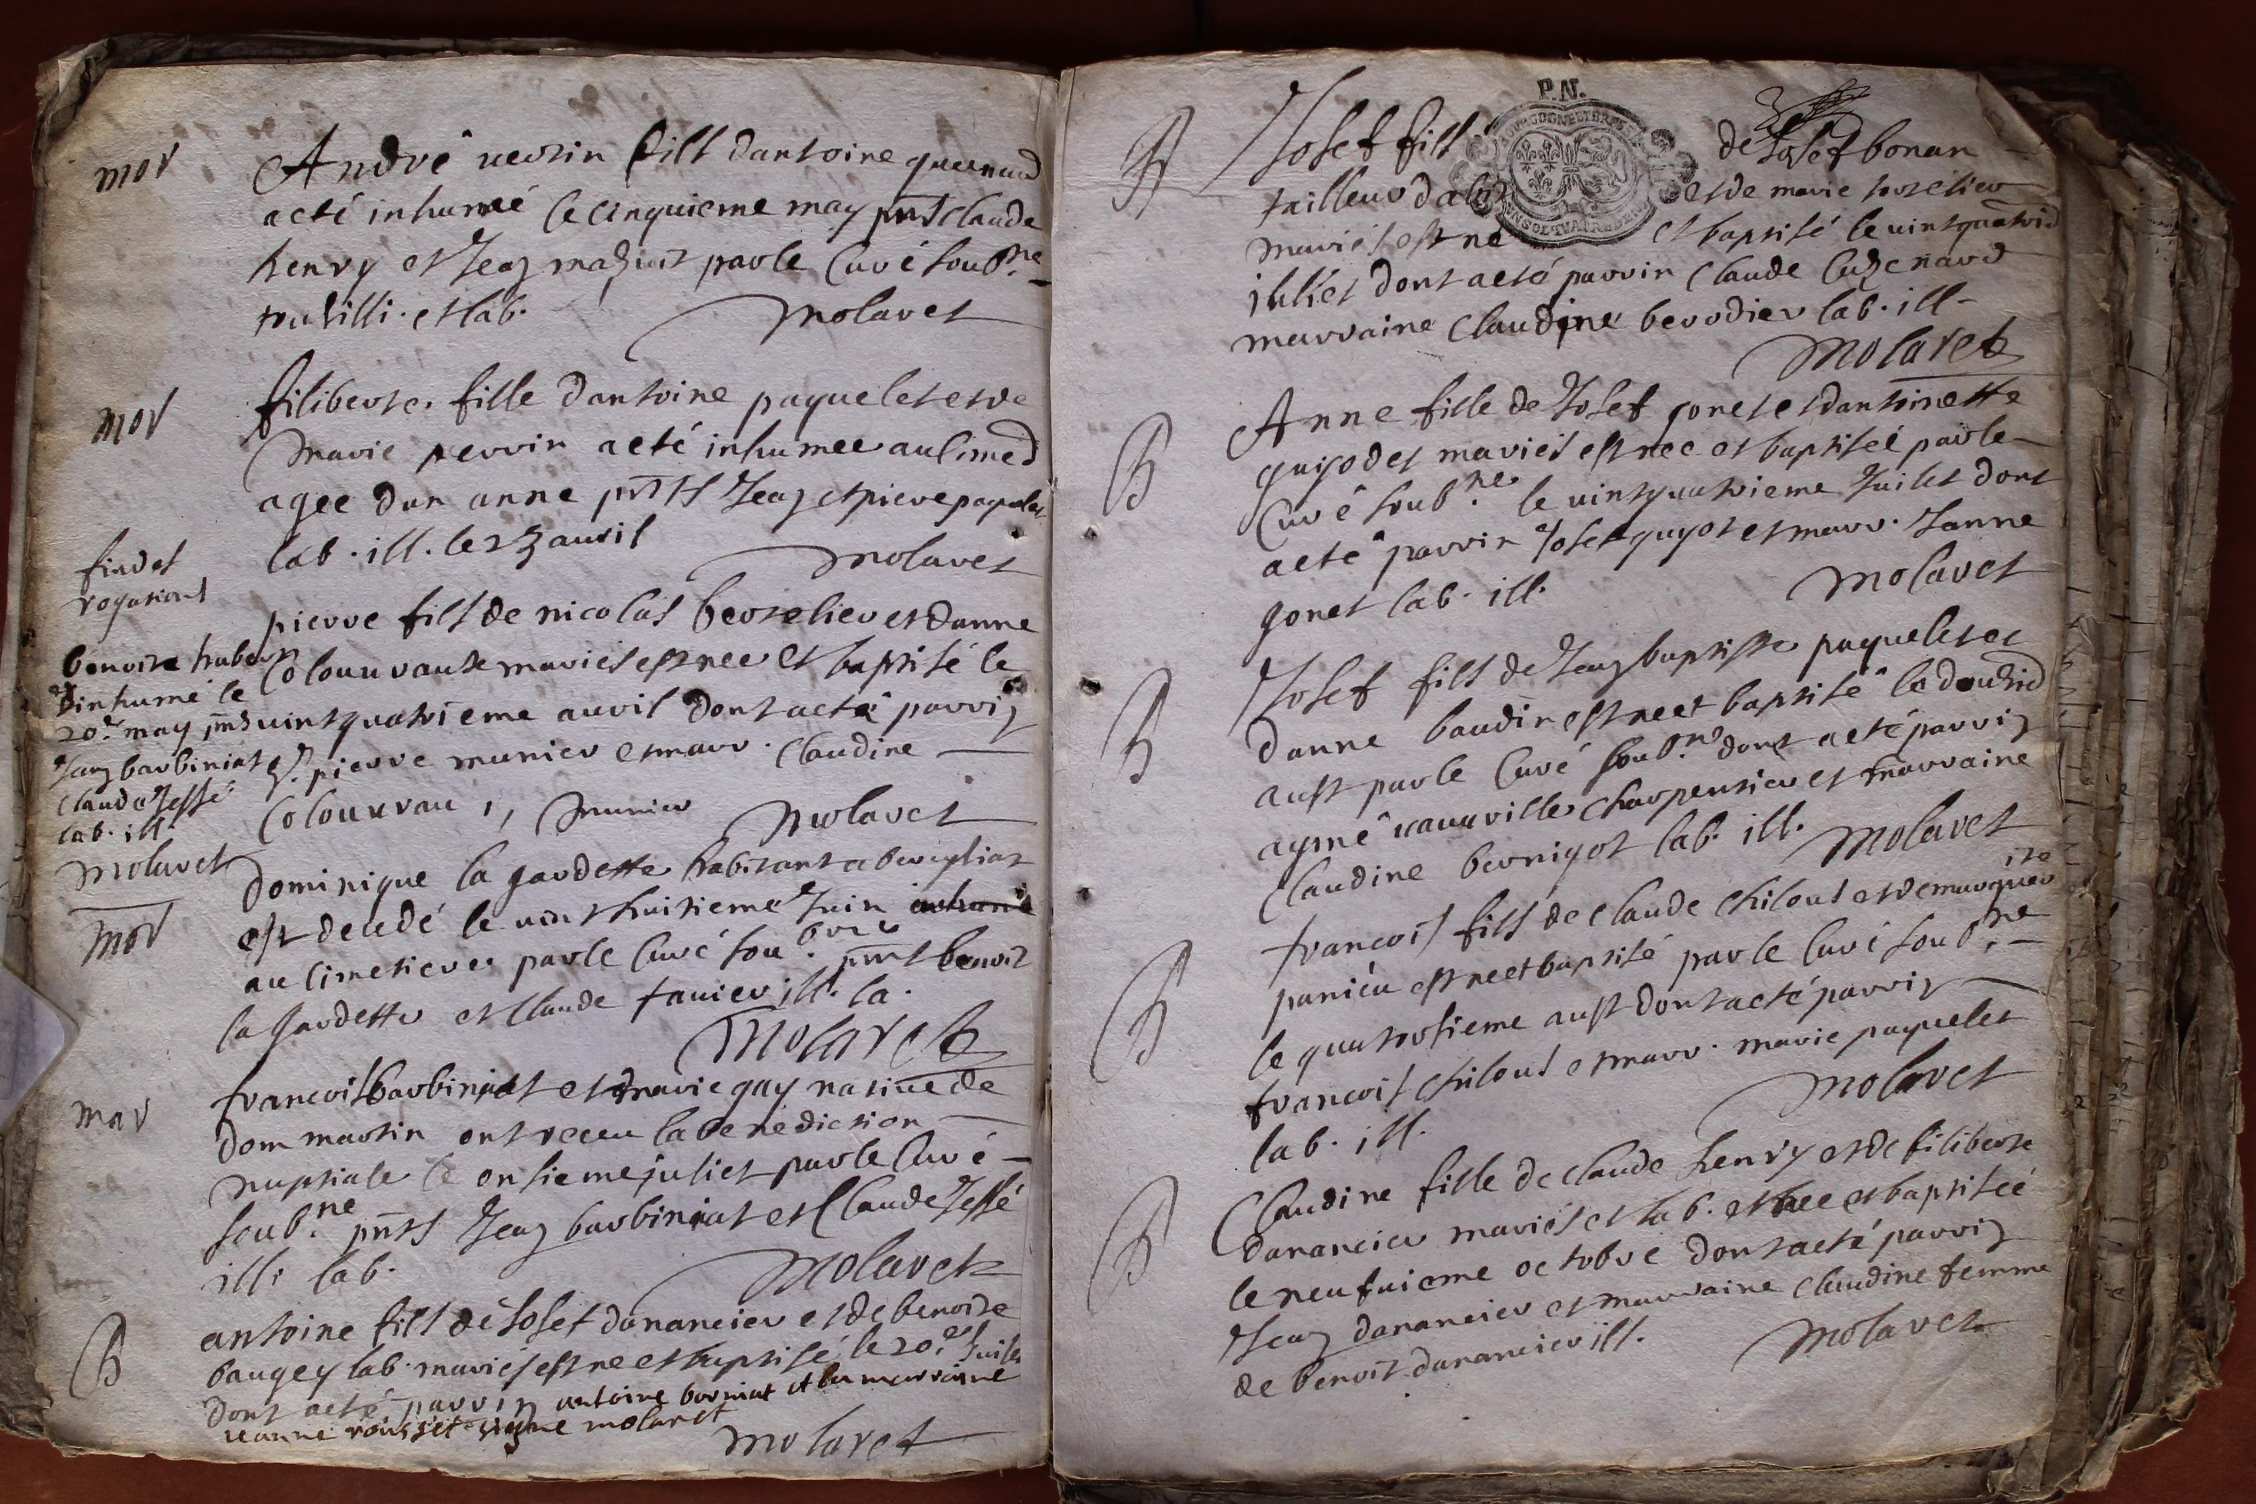 mor
André versin fils dantoine
a eté inhumé le cinquieme may pnts claude
henry et Jean mazuit par le Curé soub.ne
tous illi. et lab.
molaret
mor
filiberte fille dantoine paquelet et de
marie perrin a eté inhumee au Cime
agee dun anne pnts Jean et piere paquelet
lab. ill. le 23 auril
molaret
fin des
rogations
pierre fils de nicolas bertelier et danne
Colouurante mariés est nee et baptisé le
uintquatrieme auril dont a eté parrin
pierre munier et marr. Claudine
Colouurau munier
molaret
benoite hubert
inhumé le
20.e may pnts
Jean barbiniat et
Claude Jessé
lab. ill.
molaret
mor
dominique la gardette habitant a
est decedé le uint huitieme Juin
au Cimetiere par le Curé sou. pnts benoit
la gardette et Claude fauier ill. la.
molaret
mar
francois barbiniat et marie gay natiue de
dom martin ont receu la benediction
nuptiale le onsieme juliet par le Curé
soub.ne pnts Jean barbiniat et Claude Jessé
illi lab.
molaret
B
antoine fils de Josef danancier et de benoite
baugey lab. mariés est ne et baptisé le 20.e Juilet
dont a eté parrin antoine borniat et la marraine
jeanne rousset signe molaret
molaret
P.N.
B
Josef fils de Josef bonan
tailleur dabis et de marie
mariés est né et baptisé le
juliet dont a eté parrin Claude Cuzenard
marraine Claudine berodier lab. ill
molaret
B
Anne fille de Josef gonet et dantoinette
guigodet mariés est nee et baptiseé par le
Curé soub.ne le uintquatrieme Juilet dont
a eté parrin Josef guyot et marr. Janne
gonet lab. ill.
molaret
B
Josef fils de Jean baptiste paquelet et
danne baudin est ne et baptisé le
aust par le Curé soub.ne dont a eté parrin
aymé uauuille charpentier et marraine
Claudine bernigot lab. ill.
molaret
B
francois fils de Claude chilous et de marguer
ite
paniéu est ne et baptisé par le Curé soub.ne
le quatorsieme aust dont a eté parrin
francois chilous et marr. marie paquelet
lab. ill.
molaret
B
Claudine fille de Claude henry et de filiberte
danancier mariés et lab. est nee et baptiseé
le neufuieme octobre dont a eté parrin
Jean dananeier et marraine Claudine femme
de benoit dananeier ill.
molaret